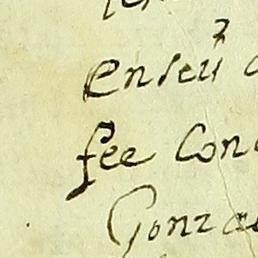 en seu
fee Con
Gonza